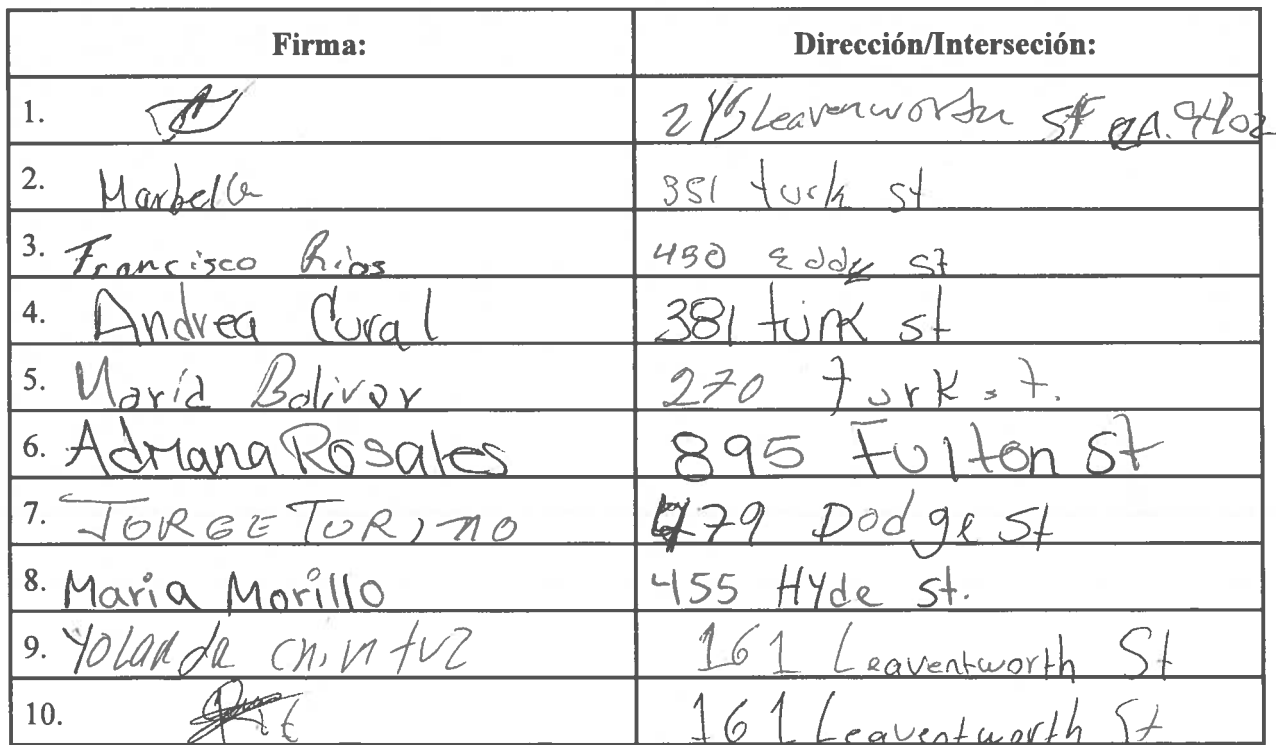 Firma: Dirección/Interseción:
1. 245 Leavenworth St
2. Marbella 351 turk st
3. Francisco Rios 450 Eddy st
4. Andrea Cural 381 turk st
5. María Bolivar 270 turk st.
6. Adriana Rosales 895 Fulton St
7. JORGE TORINO 479 Dodge St
8. Maria Morillo 455 Hyde st.
9. Yolanda chintuz 161 Leaventworth St
10. 161 Leaventworth St